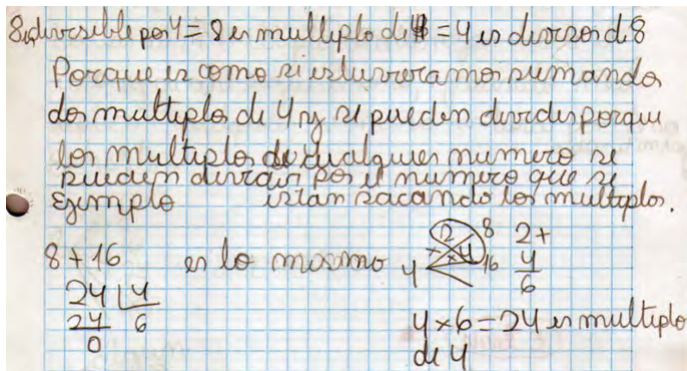 8 es divisible por 4 = 8 es multiplo de 4 = 4 es divisor de 8
Porque es como si estuvieramos sumando
dos multiplos de 4 y si pueden dividir porque
los multiplos de cualquier numero se
pueden dividir por el numero que se
Ejemplo están sacando los multiplos.
8 + 16 es lo mismo 4 2 8 2+
24 4 ×4 16 4
24 6 6
0
4 × 6 = 24 es multiplo
de 4